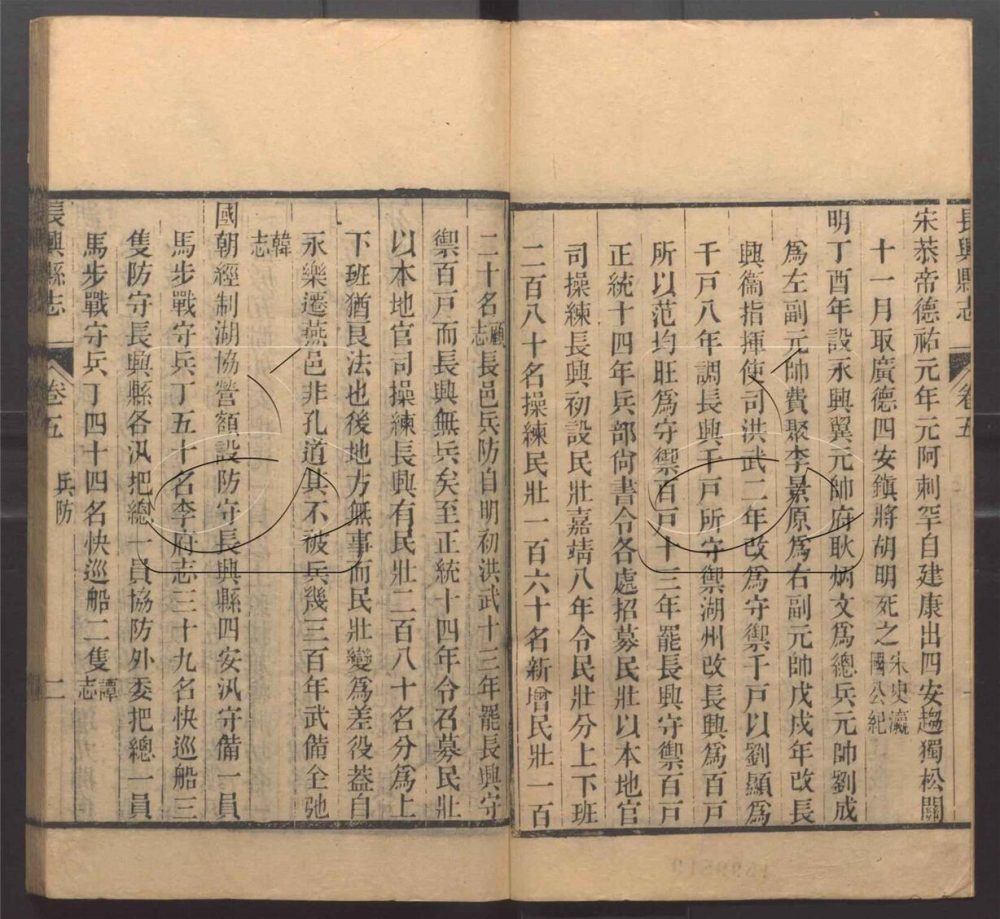 長興縣志 卷五
宋恭帝德祐元年元阿剌罕自建康出四安趨獨松關
十一月取廣德四安鎮將胡明死之宋史瀛國公紀
明丁酉年設永興翼元帥府耿炳文爲總兵元帥劉成
爲左副元帥費聚李景原爲右副元帥戊戌年改長
興衞指揮使司洪武二年改爲守禦千戸以劉顯爲
千戸八年調長興千戸所守禦湖州改長興爲百戸
所以范均旺爲守禦百戸十三年罷長興守禦百戸
正統十四年兵部尙書令各處招募民壯以本地官
司操練長興初設民壯嘉靖八年令民壯分上下班
二百八十名操練民壯一百六十名新增民壯一百
二十名顧志長邑兵防自明初洪武十三年罷長興守
禦百戸而長興無兵矣至正統十四年令召募民壯
以本地官司操練長興有民壯二百八十名分爲上
下班猶良法也後地方無事而民壯變爲差役蓋自
永樂遷燕邑非孔道其不被兵幾三百年武備全弛
韓志
國朝經制湖協營額設防守長興縣四安汛守備一員
馬步戰守兵丁五十名李府志三十九名快巡船三
隻防守長興縣各汛把總一員協防外委把總一員
馬步戰守兵丁四十四名快巡船二隻譚志
長興縣志 卷五 兵防 二